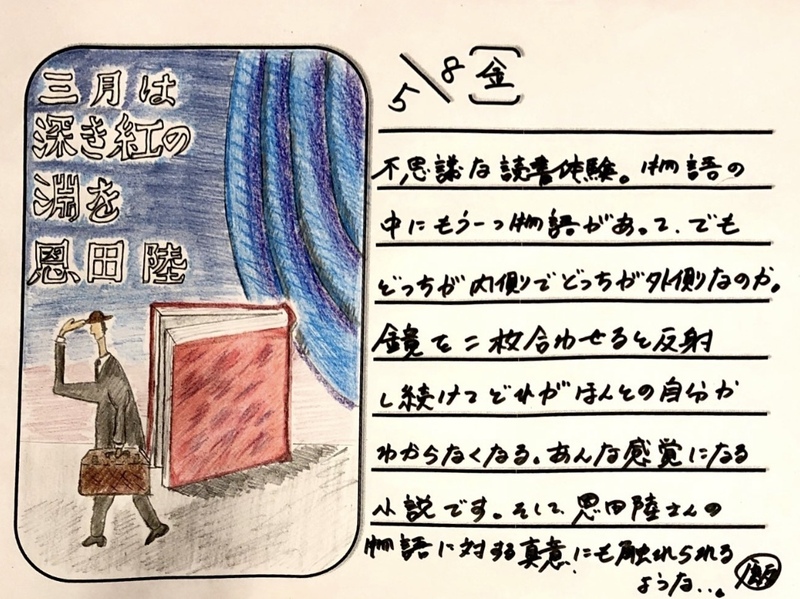 三月は
深き紅の
淵を
恩田陸
5/8(金)
不思議な読書体験。物語の
中にもう一つ物語があって、でも
どっちが内側でどっちが外側なのか。
鏡を二枚合わせると反射
し続けてどれがほんとの自分か
わからなくなる。あんな感覚になる
小説です。そして恩田陸さんの
物語に対する真意にも触れられる
ような…。